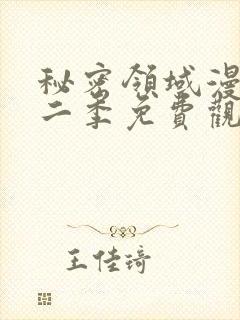 秘密領域漫
二季免費觀
王佳琦